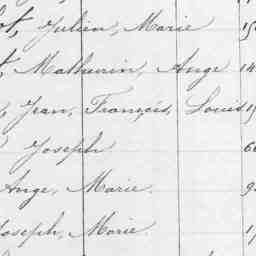 ot, Julien, Marie 15
t, Mathurin, Ange 14
, Jean, François, Louis 1
Joseph 6
Ange, Marie. 9
Joseph, Marie. 1